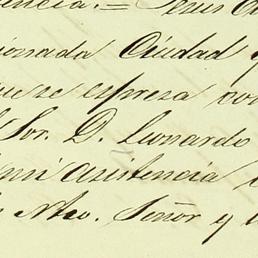 encia.= Jesus
ionada Ciudad y
que se espresa con
Sor. D. Leonardo
mi asistencia
Ntro. Señor y